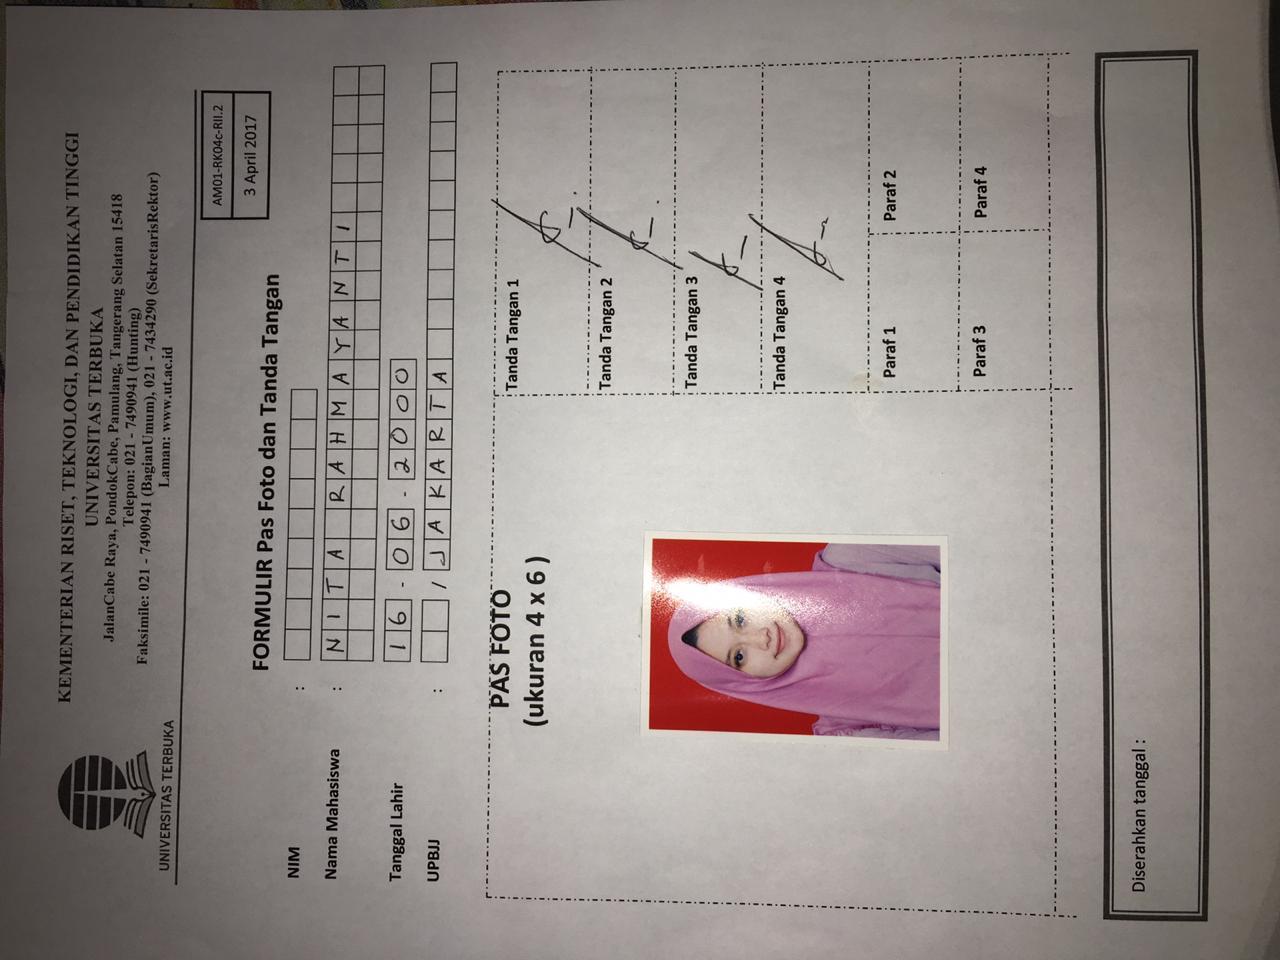 KEMENTERIAN RISET, TEKNOLOGI, DAN PENDIDIKAN TINGGI
UNIVERSITAS TERBUKA
JalanCabe Raya, PondokCabe, Pamulang, Tangerang Selatan 15418
Telepon: 021 - 7490941 (Hunting)
Faksimile: 021 - 7490941 (BagianUmum), 021 - 7434290 (SekretarisRektor)
Laman: www.ut.ac.id
UNIVERSITAS TERBUKA
AM01-RK04c-RII.2
3 April 2017
FORMULIR Pas Foto dan Tanda Tangan
NIM :
Nama Mahasiswa : NITA RAHMAYANTI
Tanggal Lahir 16 - 06 - 2000
UPBJJ : / JAKARTA
PAS FOTO
(ukuran 4 x 6 )
Tanda Tangan 1
Tanda Tangan 2
Tanda Tangan 3
Tanda Tangan 4
Paraf 1 Paraf 2
Paraf 3 Paraf 4
Diserahkan tanggal :